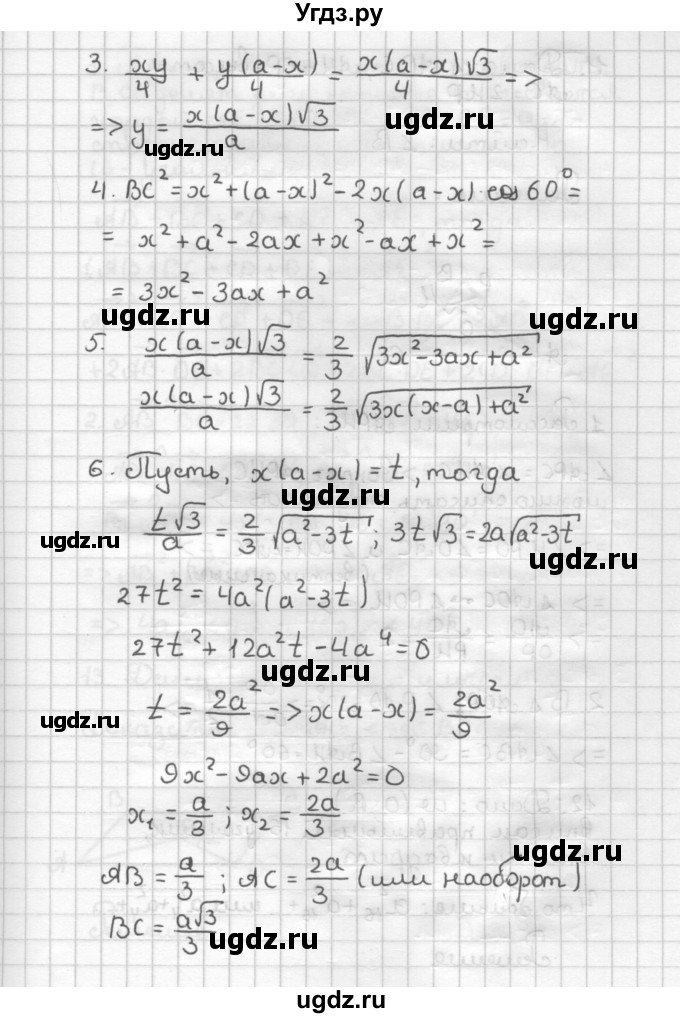 Угдз.ру
3. xy/4 + y(a-x)/4 = x(a-x)√3/4 =>
ugdz.ru
=> y = x(a-x)√3/a
ugdz.ru ugdz.ru
4. BC² = x² + (a-x)² - 2x(a-x)·cos 60° =
= x² + a² - 2ax + x² - ax + x² =
= 3x² - 3ax + a²
ugdz.ru ugdz.ru
5. x(a-x)√3/a = 2/3 √(3x² - 3ax + a²)
x(a-x)√3/a = 2/3 √(3x(x-a) + a²)
ugdz.ru ugdz.ru
6. Пусть, x(a-x) = t, тогда
ugdz.ru
t√3/a = 2/3 √(a² - 3t); 3t√3 = 2a√(a² - 3t)
ugdz.ru ugdz.ru
27t² = 4a²(a² - 3t)
27t² + 12a²t - 4a⁴ = 0
ugdz.ru
t = 2a²/9 => x(a-x) = 2a²/9
ugdz.ru ugdz.ru
9x² - 9ax + 2a² = 0
x₁ = a/3; x₂ = 2a/3
ugdz.ru ugdz.ru
AB = a/3; AC = 2a/3 (или наоборот)
BC = a√3/3
ugdz.ru ugdz.ru
ugdz.ru